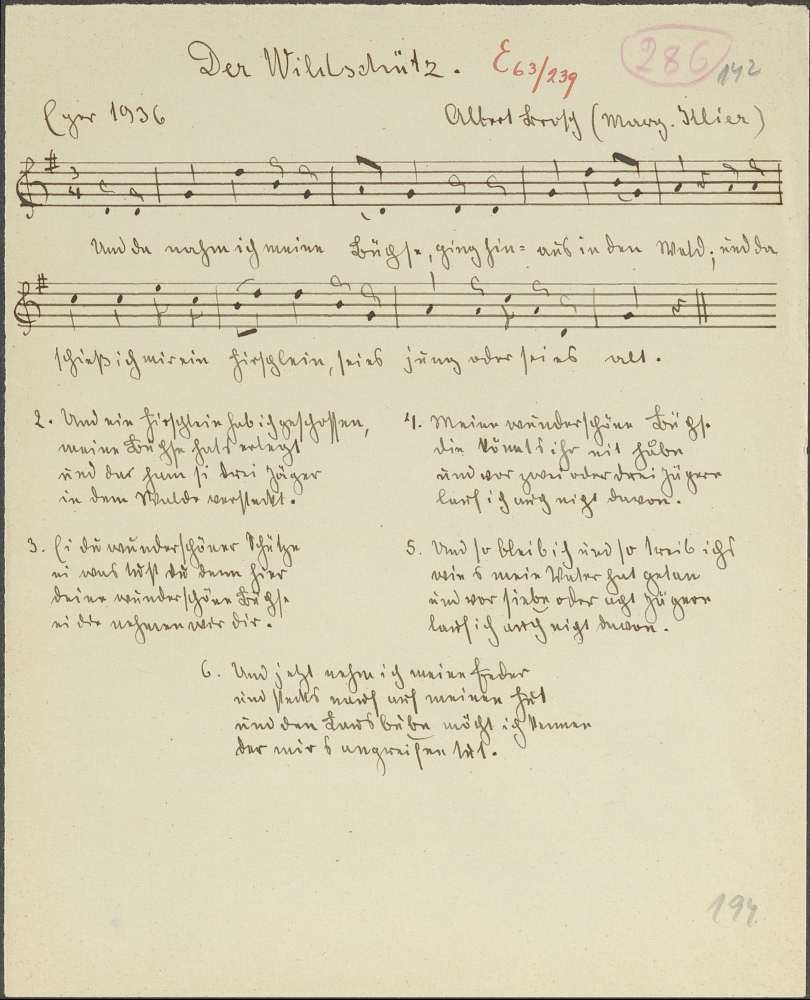 Der Wildschütz. E63/239 286 142
Eger 1936 Albert Brosch (Marg. Illier)
Und da nahm ich meine Büchse, ging hin= aus in den Wald; und da
schieß ich mir ein Hirschlein, sei es jung oder sei es alt.
2. Und ein Hirschlein hab ich geschossen,
meine Büchse hats erlegt
und das ham si drei Jäger
in dem Walde versteckt.
3. Ei du wunderschöner Schütze
ei was tust du denn hier
deine wunderschöne Büchs
ei die nehmen wir dir.
4. Meine wunderschöne Büchs
die könnts ihr nit håbn
und vor zwei oder drei Jägern
lauf ich auch nicht davon.
5. Und so bleib ich und so treib ichs
wie's mein Vater hat getan
und vor siebn oder acht Jägern
lauf ich auch nicht davon.
6. Und jetzt nehm ich meine Feder
und stecks nauf auf meinen Hut
und den Lausbubn möcht ich kennen
der mir's angreifen tut.
194